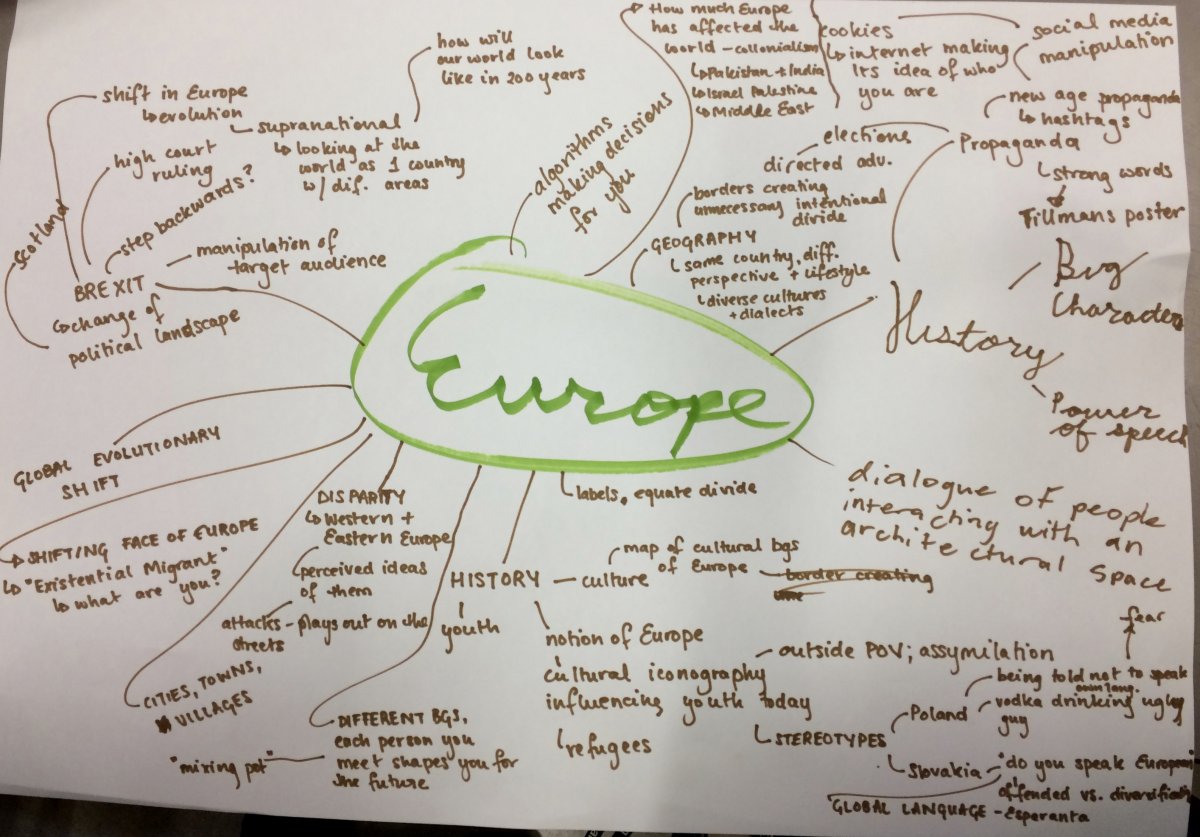 how will
our world look
like in 200 years
shift in Europe
↳evolution
supranational
↳ looking at the
world as 1 country
w/ dif. areas
high court
ruling
step backwards?
scotland
manipulation of
target audience
BREXIT
↳change of
political landscape
algorithms
making decisions
for you
How much Europe
has affected the
world - collonialism
↳Pakistan + India
↳Israel Palestine
↳Middle East
cookies
↳internet making
its idea of who
you are
social media
manipulation
new age propaganda
↳ hashtags
Propaganda
↳strong words
Tillmans poster
elections
directed adv.
borders creating
unnecessary intentional
divide
GEOGRAPHY
↳ same country, diff.
perspective + lifestyle
↳diverse cultures
+ dialects
History
Big
Characters
Power
of speech
Europe
dialogue of people
interacting with an
architectural space
GLOBAL EVOLUTIONARY
SHIFT
SHIFTING FACE OF EUROPE
↳ "Existential Migrant"
↳ what are you?
DISPARITY
↳Western +
Eastern Europe
perceived ideas
of them
attacks - plays out on the
streets
CITIES, TOWNS,
VILLAGES
DIFFERENT BGS,
each person you
meet shapes you for
the future
"mixing pot"
labels, equate divide
HISTORY - culture
youth
map of cultural bgs
of Europe
border creating
notion of Europe
cultural iconography
influencing youth today
↳refugees
outside POV; assymilation
↳STEREOTYPES
Poland
fear
being told not to speak
own lang.
vodka drinking ugly
guy
Slovakia - "do you speak European
offended vs. diversific
GLOBAL LANGUAGE - Esperanta